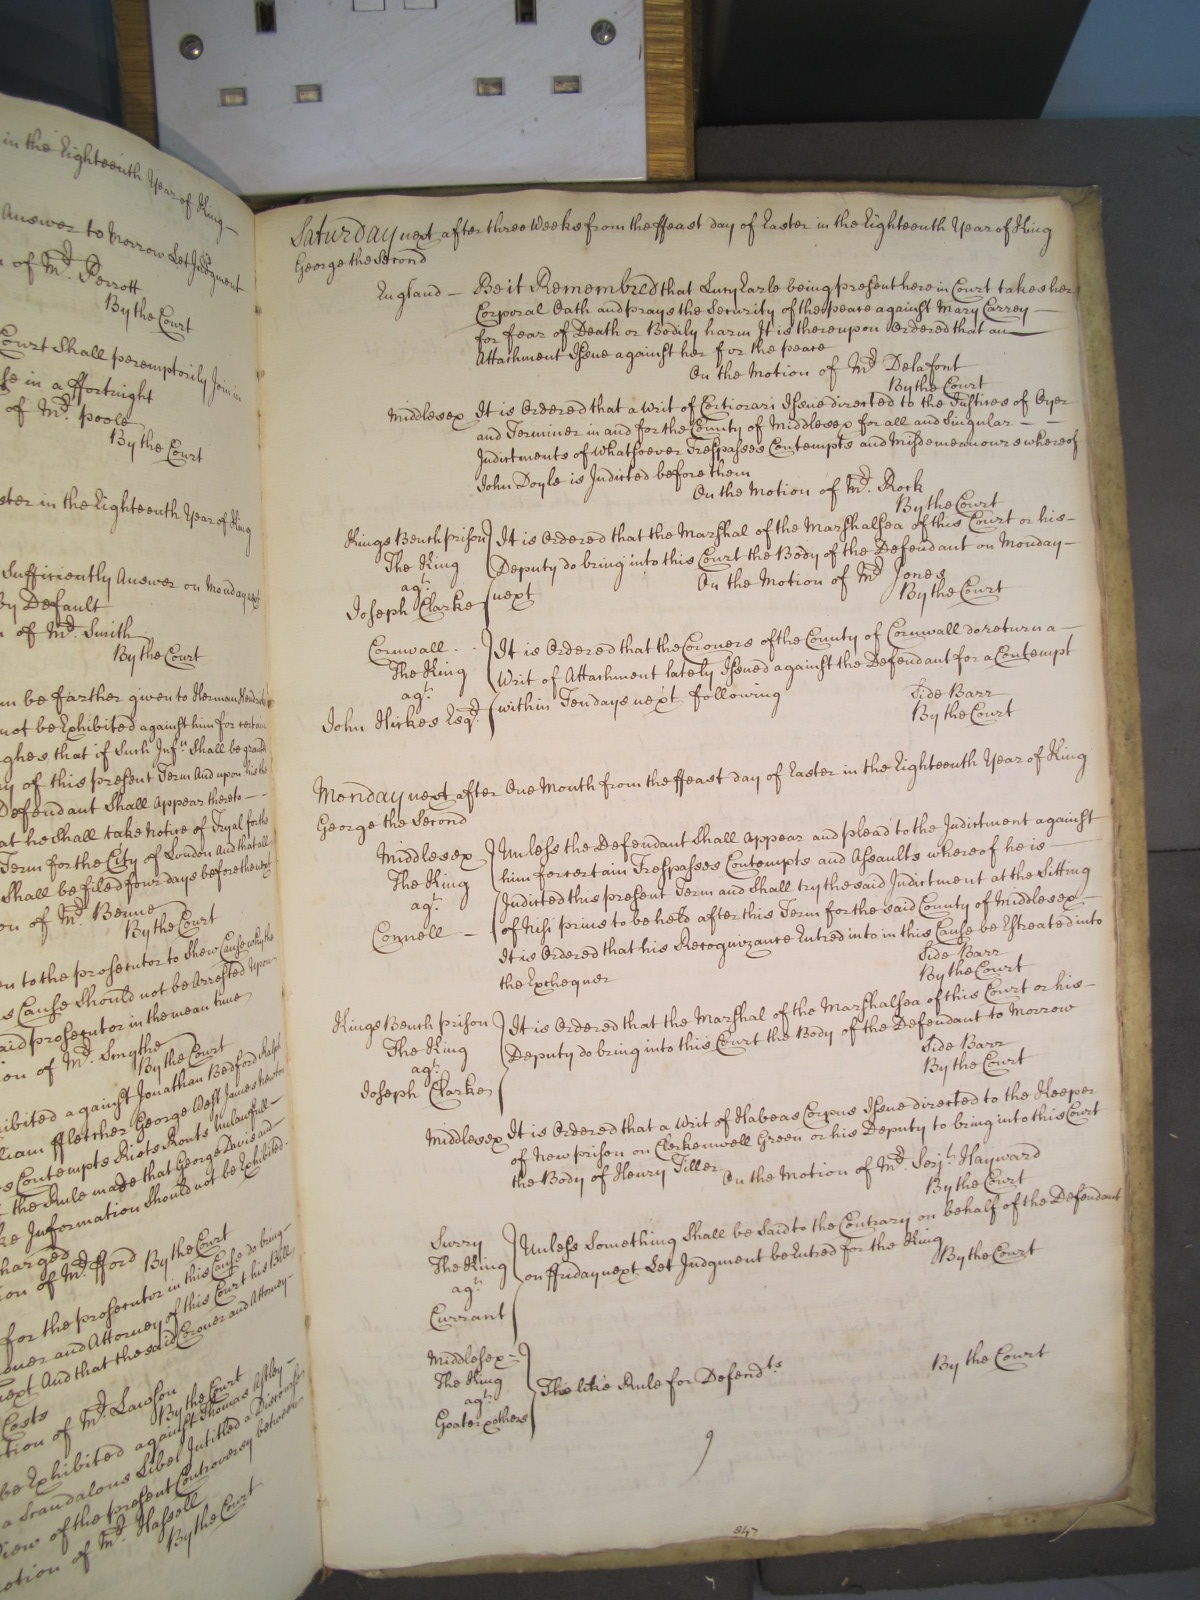 in the Eighteenth Year of King
Answer to Morrow Let Judgment
of Mr. Perrott
By the Court
Court Shall peremptorily Join in
in a ffortnight
of Mr. Poole
By the Court
in the Eighteenth Year of King
Sufficiently Answer on Monday next
by Default
of Mr. Smith
By the Court
be farther given to Herman
not be Exhibited against him for certain
that if Such Infn. Shall be granted
of this present Term And upon his the
Defendant Shall Appear thereto
he Shall take Notice of Tryal for the
Term for the City of London And that all
Shall be filed four days before the next
of Mr. Benne
By the Court
to the prosecutor to Shew Cause why the
Cause Should not be Arrested Upon
said prosecutor in the mean time
of Mr. Smythe
By the Court
against Jonathan Bedford Ralph
ffletcher George West James Newton
Contempts Riots Routs unlawfull
the Rule made that George Davis and
Information Should not be Exhibited
of Mr. fford By the Court
for the prosecutor in this Cause do bring
and Attorney of this Court his Bill
next And that the said Coroner and Attorney
Costs
of Mr. Lawson
By the Court
be Exhibited against Thomas Astley
a Scandalous Libel Intitled a Discourse
View of the present Controversy between
of Mr. Hassell
By the Court
Saturday next after three Weeks from the ffeast day of Easter in the Eighteenth Year of King
George the Second
England — Be it Remembred that Lucy Earle being present here in Court takes her
Corporal Oath and prays the Security of the peace against Mary Carrey —
for fear of Death or Bodily harm It is thereupon Ordered that an
Attachment Issue against her for the peace
On the Motion of Mr. Delafont
By the Court
Middlesex It is Ordered that a Writ of Certiorari Issue directed to the Justices of Oyer
and Terminer in and for the County of Middlesex for all and Singular —
Indictments of whatsoever Trespasses Contempts and Misdemeanours whereof
John Doyle is Indicted before them
On the Motion of Mr. Rock
By the Court
Kings Bench prison It is Ordered that the Marshal of the Marshalsea of this Court or his
The King Deputy do bring into this Court the Body of the Defendant on Monday
agt. next On the Motion of Mr. Jones
Joseph Clarke By the Court
Cornwall It is Ordered that the Coroners of the County of Cornwall do return a
The King Writ of Attachment lately Issued against the Defendant for a Contempt
agt. within Ten days next following Side Barr
John Hickes Esqr. By the Court
Monday next after One Month from the ffeast day of Easter in the Eighteenth Year of King
George the Second
Middlesex Unless the Defendant Shall Appear and plead to the Indictment against
The King him for certain Trespasses Contempts and Assaults whereof he is
agt. Indicted this present Term and Shall try the said Indictment at the Sitting
Connell — of Nisi prius to be held after this Term for the said County of Middlesex
It is Ordered that his Recognizance Entred into in this Cause be Estreated into
the Exchequer Side Barr
By the Court
Kings Bench prison It is Ordered that the Marshal of the Marshalsea of this Court or his
The King Deputy do bring into this Court the Body of the Defendant to Morrow
agt. Side Barr
Joseph Clarke By the Court
Middlesex It is Ordered that a Writ of Habeas Corpus Issue directed to the Keeper
of New prison on Clerkenwell Green or his Deputy to bring into this Court
the Body of Henry Tiller On the Motion of Mr. Serjt. Hayward
By the Court
Surry Unless Something Shall be Said to the Contrary on behalf of the Defendant
The King on ffriday next Let Judgment be Entred for the King
agt. By the Court
Currant
Middlesex
The King The like Rule for Defendts By the Court
agt.
Goater & others
847